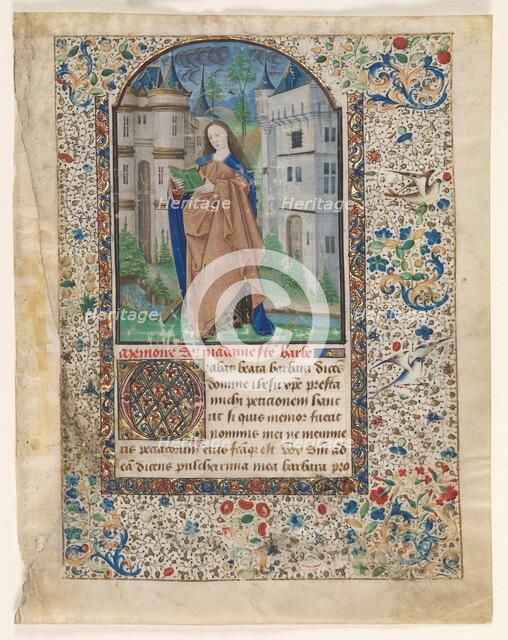 memoire de madame ste barbe
rabat beata barbara dices
domine ihesu xpe presta
michi peticionem hanc
ut si quis memor fuerit
nominis mei ne memine
ris peccatorum
ea dicens pulcherrima mea barbara pro
Heritage
Heritage
Heritage
Heritage
Heritage
Heritage
Heritage
Heritage